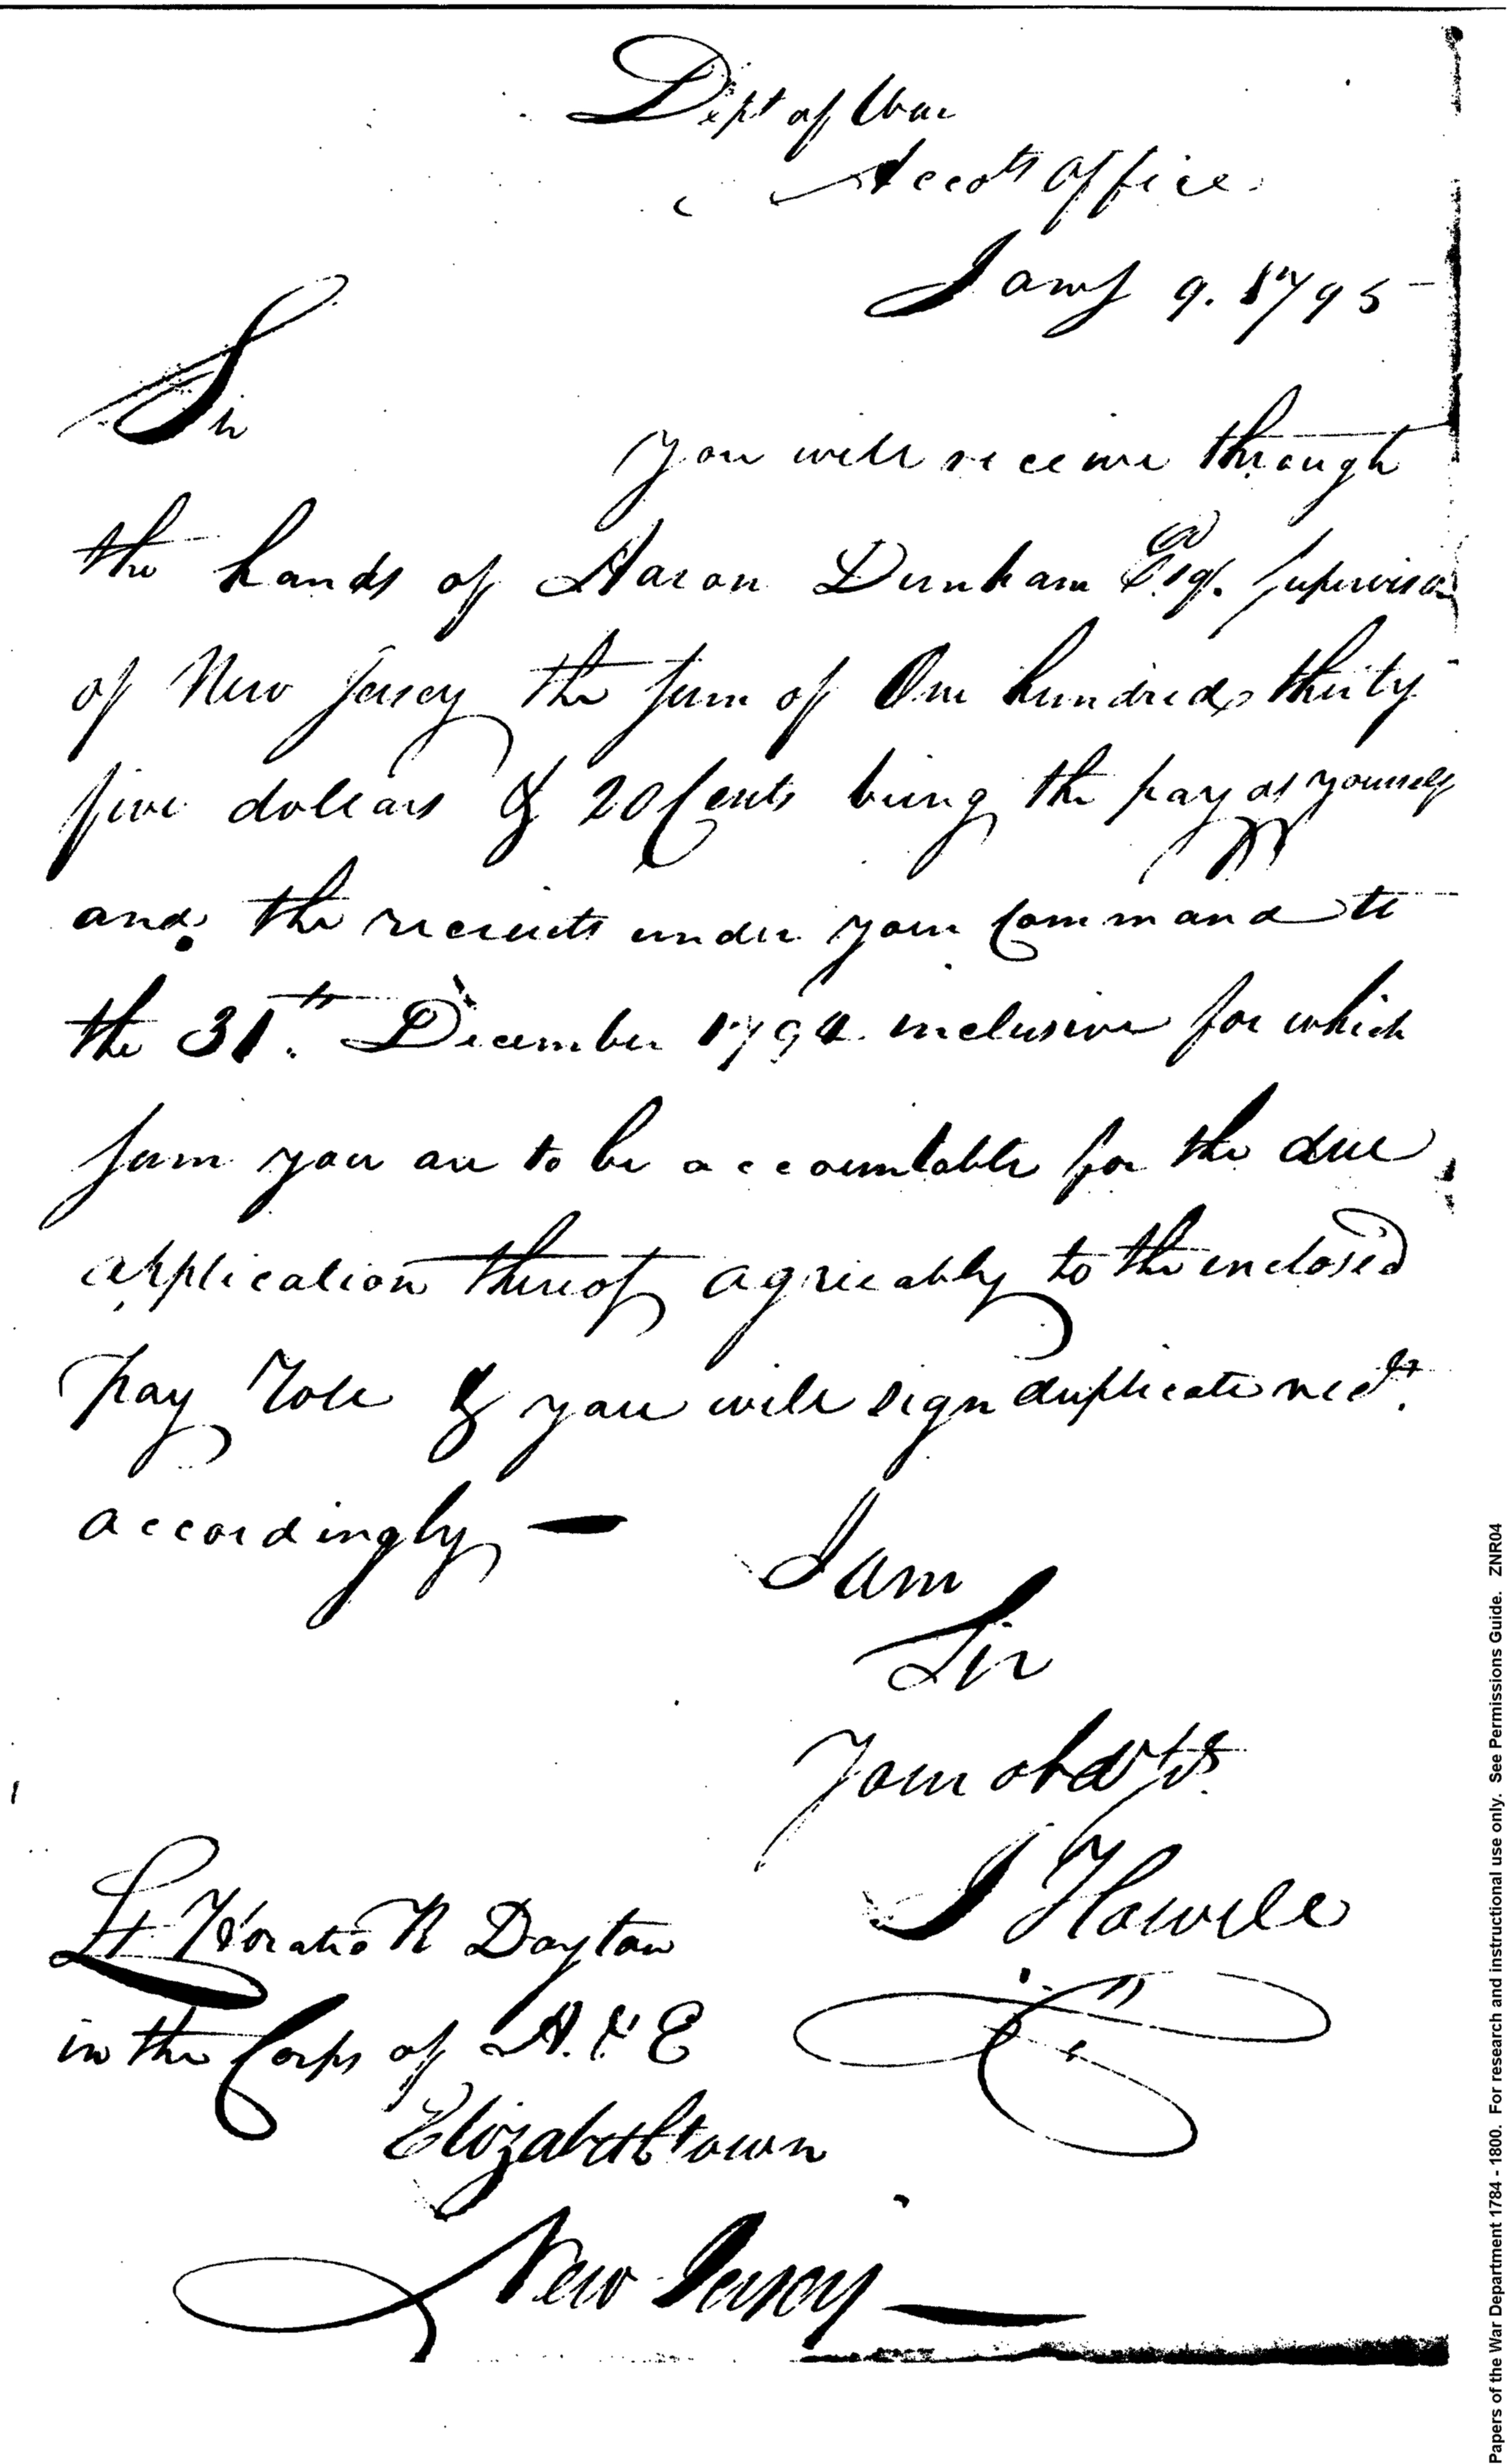 Dept of War
Accots Office
Jany 9. 1795 -
Sir
you will receive through
the hands of Aaron Dunham Esqr. Supervisor
of New Jersey the sum of One hundred thirty
five dollars & 20 Cents being the pay of yourself
and the recruits under your Command to
the 31th. December 1794. inclusive for which
sum you are to be accountable for the due
application thereof agreeably to the enclosed
pay role & you will sign duplicate rects.
accordingly —
I am
Sir
Your obdt
J Howell
Lt Horatio R Dayton
in the Corps of A. & E
Elizabethtown
New Jersey —
Papers of the War Department 1784 - 1800. For research and instructional use only. See Permissions Guide. ZNR04